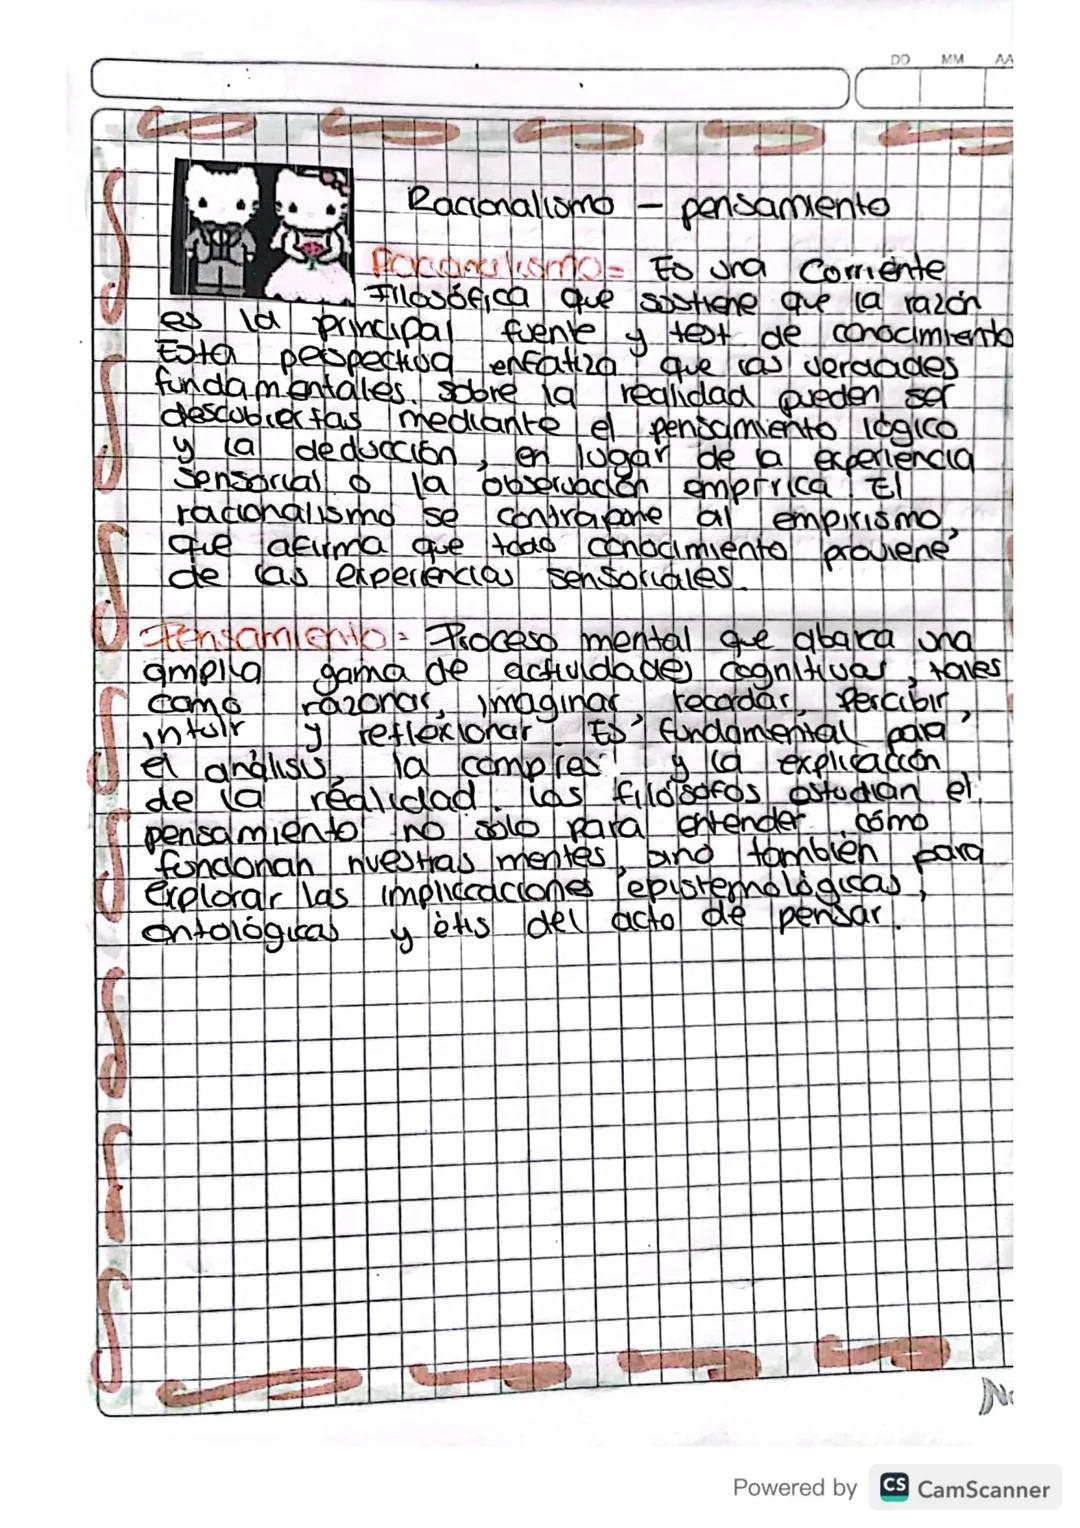 DD MM AA
Racionalismo – pensamiento
Racionalismo = Es una Corriente
Filosófica que sostiene que la razón
es la principal fuente y test de conocimiento
Esta perspectiva enfatiza que las verdades
fundamentales sobre la realidad pueden ser
descubiertas mediante el pensamiento lógico
y la deducción, en lugar de la experiencia
sensorial o la observación empírica. El
racionalismo se contrapone al empirismo,
que afirma que todo conocimiento proviene
de las experiencias sensoriales.
Pensamiento = Proceso mental que abarca una
amplia gama de actividades cognitivas, tales
como razonar, imaginar, recordar, Percibir,
intuir y reflexionar. Es fundamental para
el análisis, la compres y la explicación
de la realidad. los filósofos estudian el
pensamiento no solo para entender cómo
funcionan nuestras mentes, sino también para
explorar las implicaciones epistemológicas,
ontológicas y étis del acto de pensar.
Powered by CS CamScanner